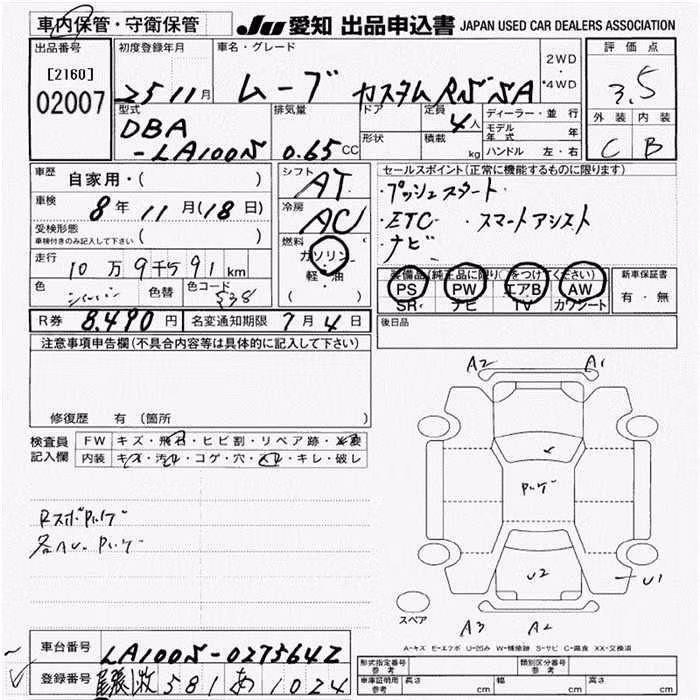 車内保管・守衛保管
JU 愛知 出品申込書 JAPAN USED CAR DEALERS ASSOCIATION
出品番号 初度登録年月 車名・グレード 2WD ・ 4WD 評価点
[2160]
02007 25 11月 ムーブ カスタム RS SA 3.5
型式 排気量 ドア 定員 4人 ディーラー・並行 外装 内装
DBA 形状 積載 kg モデル年式 年 C B
-LA100S 0.65 CC ハンドル 左・右
車歴 自家用・( ) シフト AT セールスポイント(正常に機能するものに限ります)
車検 8年 11月(18日) 冷房 AC ・プッシュスタート
受検形態 車検付きのみ記入して下さい ( ) ・ETC ・スマートアシスト
燃料 ガソリン ・ナビ
走行 10万9千591km 軽・油
装備品(純正品に限り○をつけてください) 新車保証書
色 シルバー 色替 色コード S38 ( ) PS PW エアB AW 有・無
SR ナビ TV カワシート
R券 8,490円 名変通知期限 7月4日 後日品
注意事項申告欄(不具合内容等は具体的に記入して下さい)
修復歴 有(箇所 )
A2 A1
検査員 FW キズ・飛石・ヒビ割・リペア跡・要
記入欄 内装 キズ・汚れ・コゲ・穴・スレ・キレ・破レ
Rスポ
U2 U1
スペア A3 A2
A-キズ E-エクボ U-凹み W-補修跡 S-サビ C-腐食 XX-交換済
車台番号 LA100S-0275642
形式指定番号 参考 類別区分番号 参考
登録番号 尾張 581 あ 1024
車庫証明用 参考 長さ cm 幅 cm 高さ cm